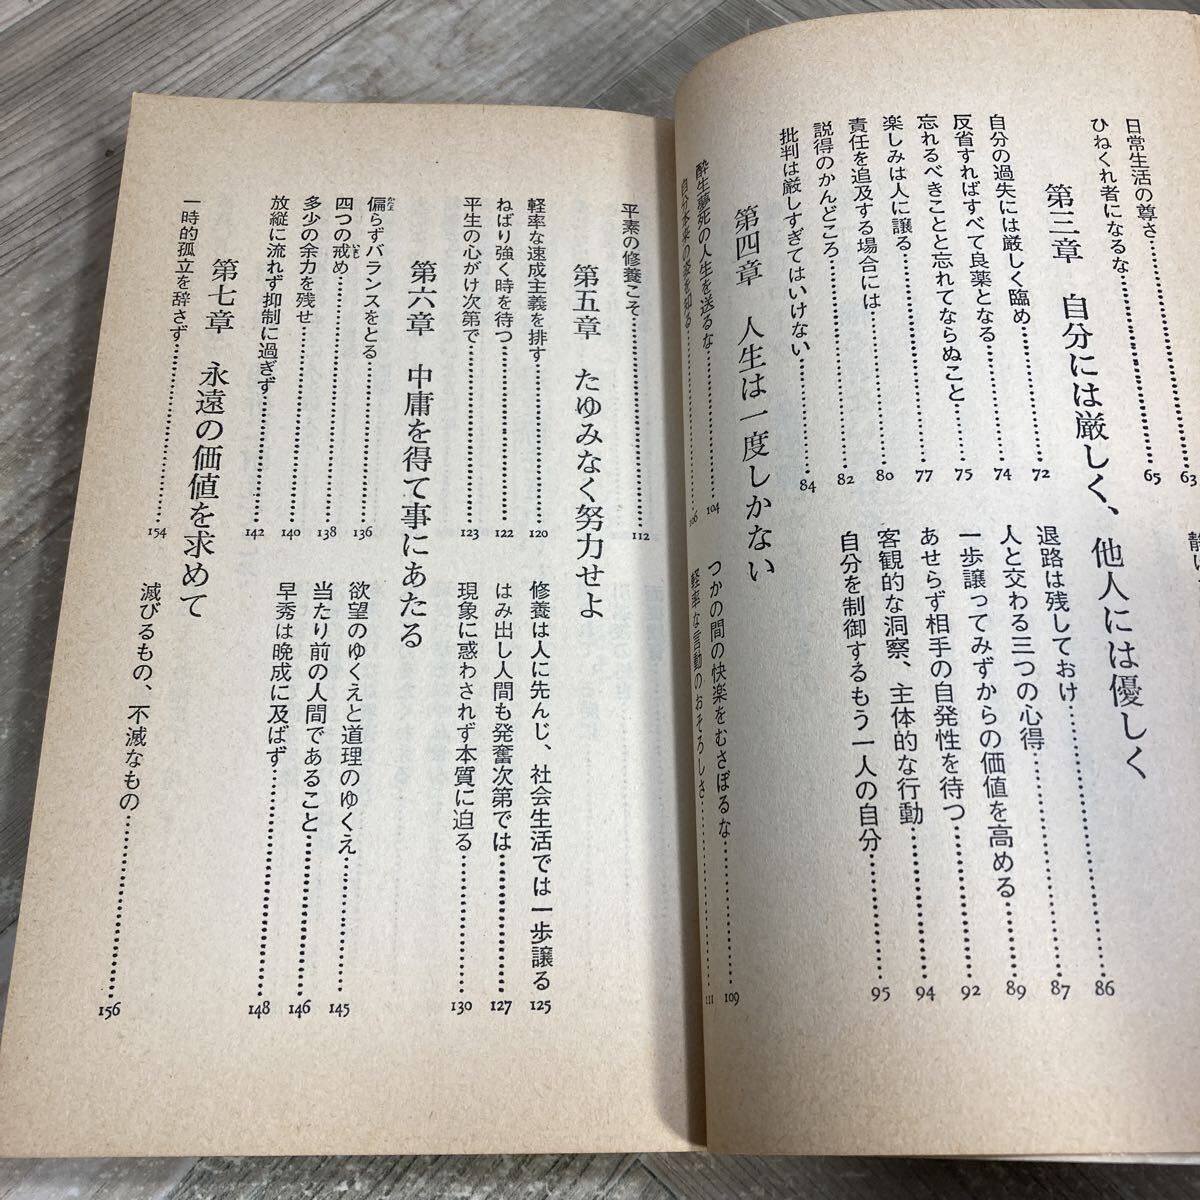 63
日常生活の尊さ 65
ひねくれ者になるな
第三章　自分には厳しく、他人には優しく
自分の過失には厳しく臨め 72
反省すればすべて良薬となる 74
忘れるべきことと忘れてならぬこと 75
楽しみは人に譲る 77
責任を追及する場合には 80
説得のかんどころ 82
批判は厳しすぎてはいけない 84
退路は残しておけ 86
人と交わる三つの心得 87
一歩譲ってみずからの価値を高める 89
あせらず相手の自発性を待つ 92
客観的な洞察、主体的な行動 94
自分を制御するもう一人の自分 95
第四章　人生は一度しかない
酔生夢死の人生を送るな 104
自分本来の姿を知る 106
つかの間の快楽をむさぼるな 109
軽率な言動のおそろしさ 111
平素の修養こそ 112
第五章　たゆみなく努力せよ
軽率な速成主義を排す 120
ねばり強く時を待つ 122
平生の心がけ次第で 123
修養は人に先んじ、社会生活では一歩譲る 125
はみ出し人間も発奮次第では 127
現象に惑わされず本質に迫る 130
第六章　中庸を得て事にあたる
偏らずバランスをとる 136
四つの戒め 138
多少の余力を残せ 140
放縦に流れず抑制に過ぎず 142
欲望のゆくえと道理のゆくえ 145
当たり前の人間であること 146
早秀は晩成に及ばず 148
第七章　永遠の価値を求めて
一時的孤立を辞さず 154
滅びるもの、不滅なもの 156